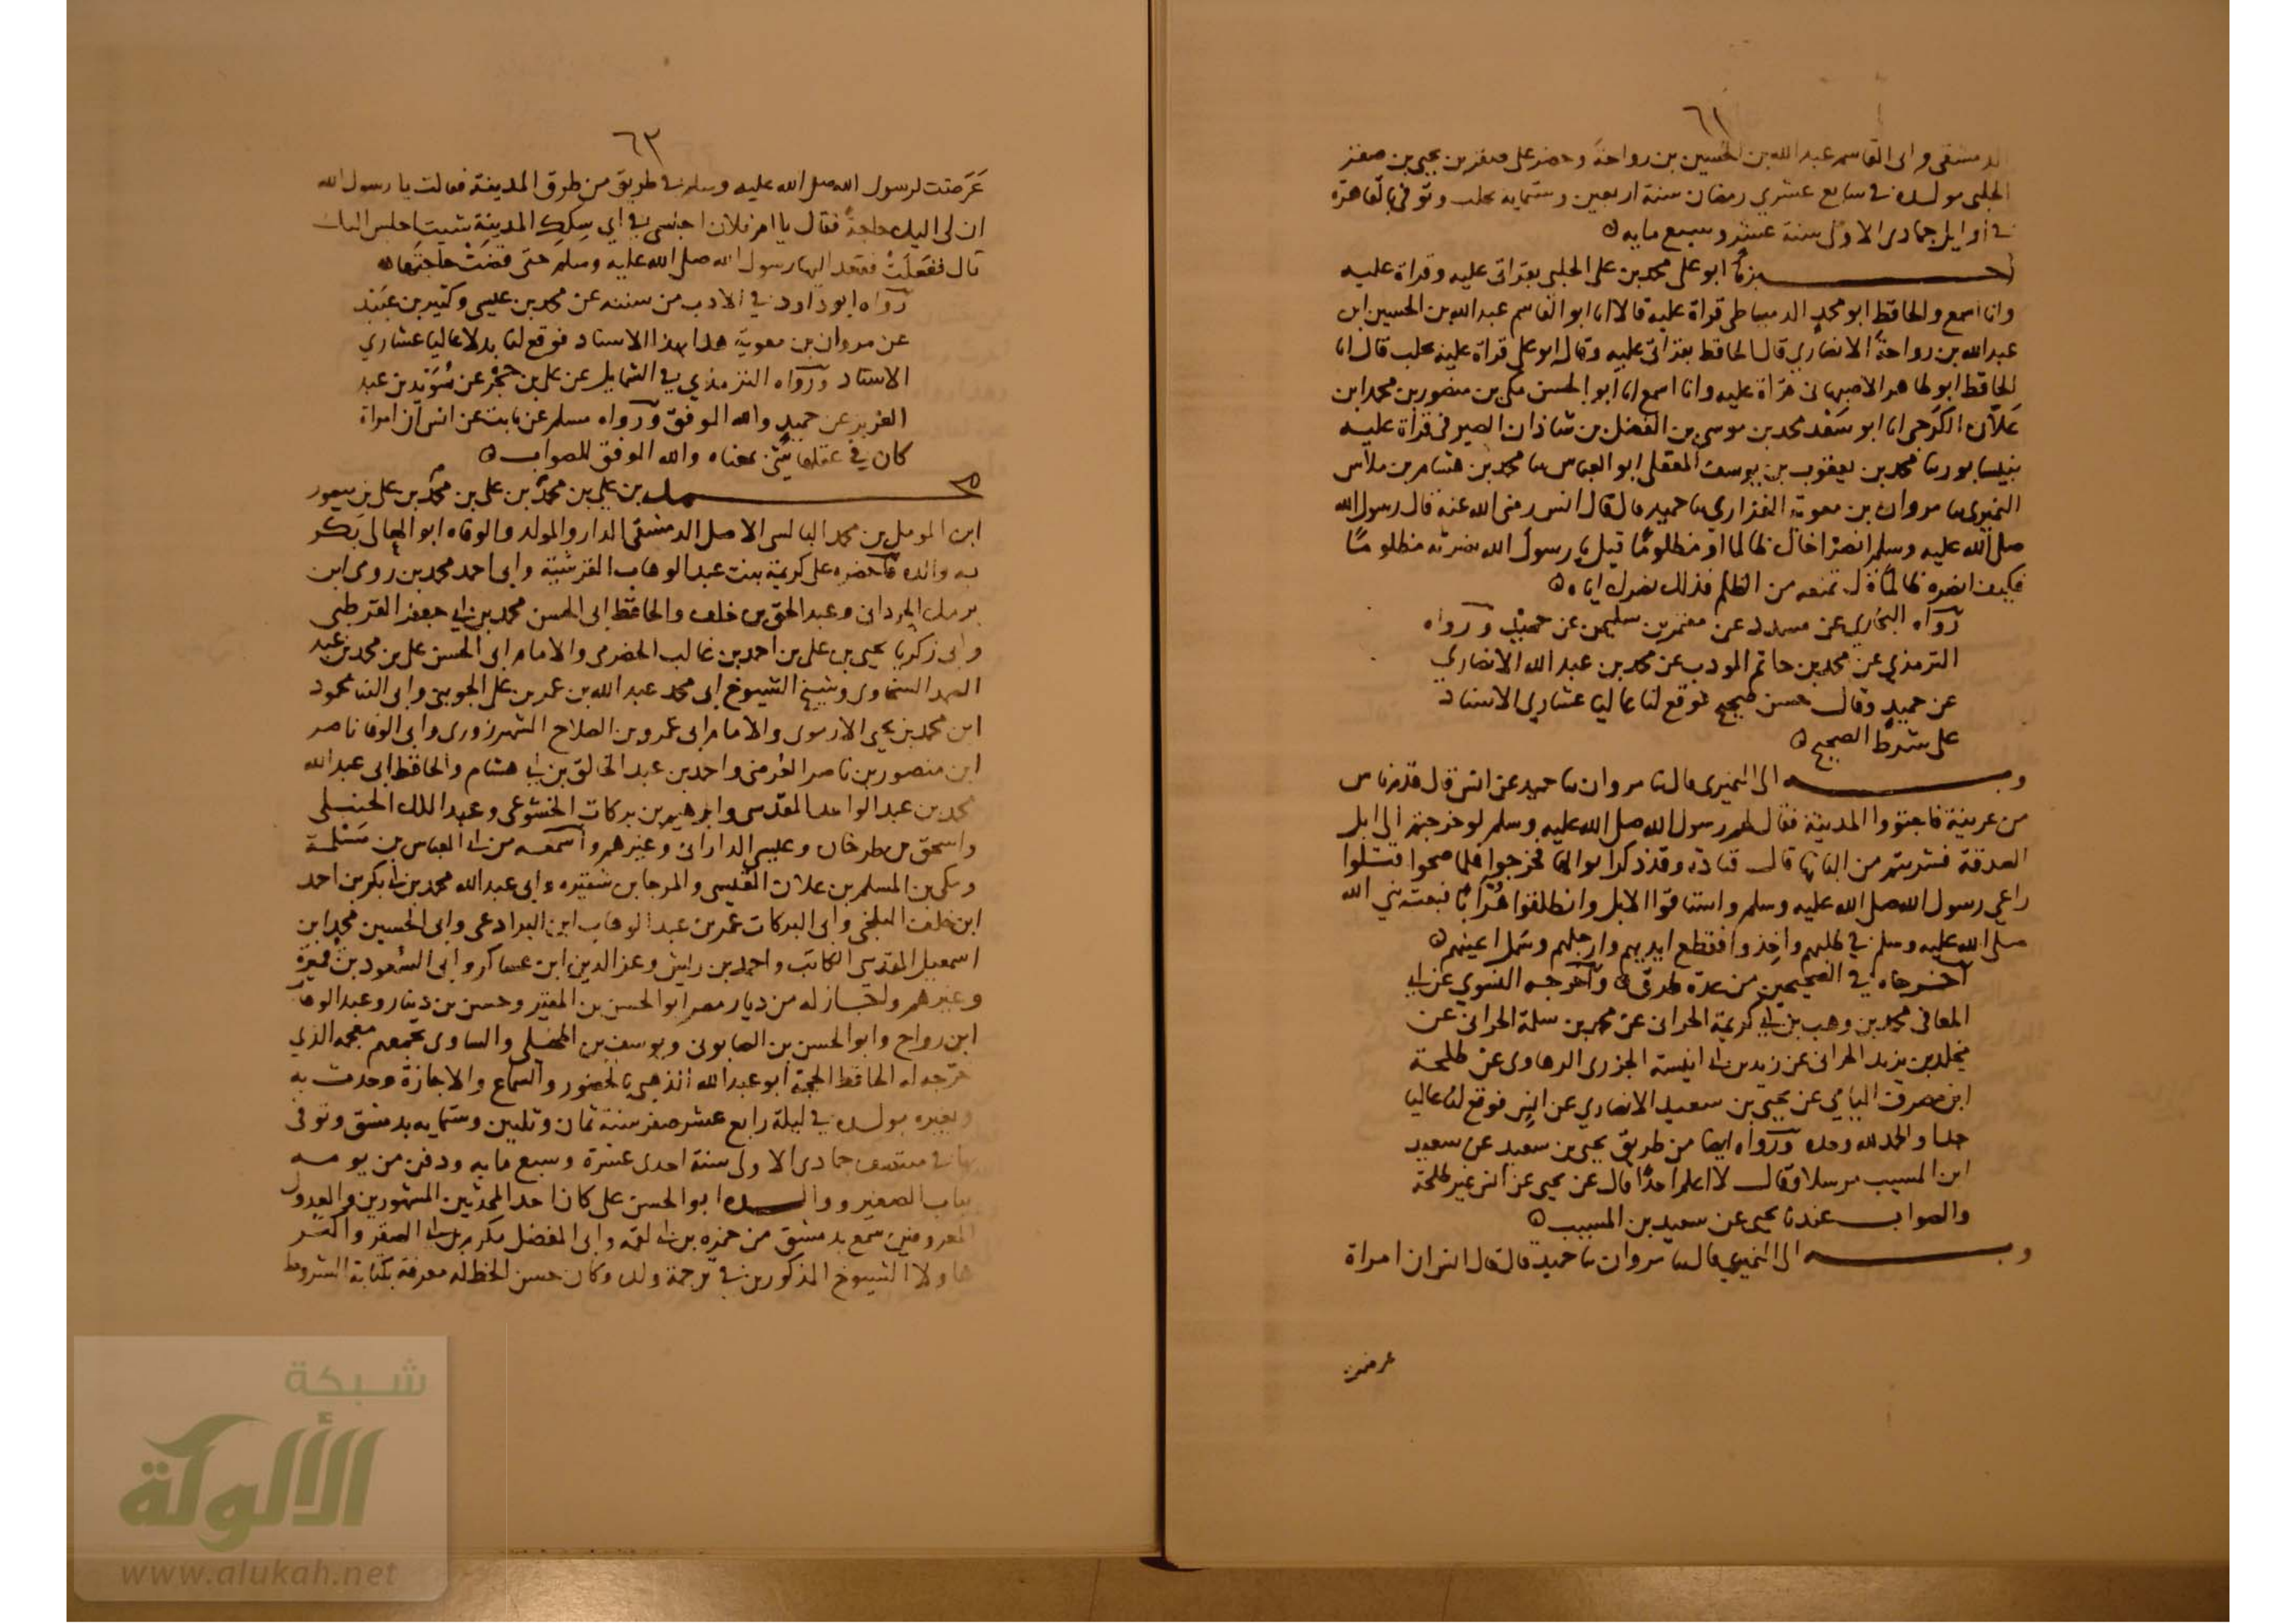 ٦٢
الدمشقى وابى القاسم عبد الله بن الحسين بن رواحة وحضر على صقر بن يحيى بن صقر
الحلبى مولده فى سابع عشرى رمضان سنة اربعين وستمايه بحلب وتوفى بالقاهرة
فى اوايل جمادى الاولى سنة عشر وسبع مايه
اخبرنا ابو على محمد بن على الحلبى بقراتى عليه وقراة عليه
وانا اسمع والحافظ ابو محمد الدمياطى قراة عليه قالا انا ابو القاسم عبد الله بن الحسين ابن
عبد الله بن رواحة الانصارى قال الحافظ بقراتى عليه وقال ابو على قراة عليه بحلب قال انا
الحافظ ابو طاهر الاصبهانى قراة عليه وانا اسمع انا ابو الحسن مكى بن منصور بن محمد ابن
علان الكرجى انا ابو سعد محمد بن موسى بن الفضل بن شاذان الصيرفى قراة عليه
بنيسابور ثنا محمد بن يعقوب بن يوسف المعقلى ابو العباس ثنا محمد بن هشام بن ملاس
النميرى ثنا مروان بن معوية الفزارى ثنا حميد قال قال انس رضى الله عنه قال رسول الله
صلى الله عليه وسلم انصر اخاك ظالما او مظلوما قيل يا رسول الله نصرته مظلوما
فكيف انصره ظالما قال تمنعه من الظلم فذلك نصرك اياه
رواه البخارى عن مسدد عن معتمر بن سليمن عن حميد ورواه
الترمذى عن محمد بن حاتم المودب عن محمد بن عبد الله الانصارى
عن حميد وقال حسن صحيح فوقع لنا عاليا عشارى الاسناد
على شرط الصحيح
وبه الى النميرى قال ثنا مروان ثنا حميد عن انس قال قدم ناس
من عرينة فاجتووا المدينة فقال لهم رسول الله صلى الله عليه وسلم لو خرجتم الى ابل
الصدقة فشربتم من البانها قال قتادة وقد ذكر ابوالها فخرجوا فلما صحوا قتلوا
راعى رسول الله صلى الله عليه وسلم واستاقوا الابل وانطلقوا هرابا فبعث نبى الله
صلى الله عليه وسلم فى طلبهم واخذوا فقطع ايديهم وارجلهم وسمل اعينهم
اخرجاه فى الصحيحين من عدة طرق واخرجه النسوى عن ابى
المعافى محمد بن وهب بن ابى كريمة الحرانى عن محمد بن سلمة الحرانى عن
مخلد بن يزيد الحرانى عن زيد بن ابى انيسة الجزرى الرهاوى عن طلحة
ابن مصرف اليامى عن يحيى بن سعيد الانصارى عن انس فوقع لنا عاليا
جدا والحمد لله وحده ورواه ايضا من طريق يحيى بن سعيد عن سعيد
ابن المسيب مرسلا وقال لا اعلم احدا قال عن يحيى عن انس غير طلحة
والصواب عندنا يحيى عن سعيد بن المسيب
وبه الى النميرى قال ثنا مروان ثنا حميد قال قال انس ان امراة
عرضت
٦٣
عرضت لرسول الله صلى الله عليه وسلم فى طريق من طرق المدينة فقالت يا رسول الله
ان لى اليك حاجة فقال يا ام فلان اجلسى فى اى سكك المدينة شيت اجلس اليك
قال ففعلت فقعد اليها رسول الله صلى الله عليه وسلم حتى قضت حاجتها
رواه ابو داود فى الادب من سننه عن محمد بن عيسى وكثير بن عبيد
عن مروان بن معوية هذا بهذا الاسناد فوقع لنا بدلا عاليا عشارى
الاسناد ورواه الترمذى فى الشمايل عن على بن حجر عن سويد بن عبد
العزيز عن حميد والله الموفق ورواه مسلم عن ثابت عن انس ان امراة
كان فى عقلها شئ بمعناه والله الموفق للصواب
محمد بن على بن محمد بن على بن محمد بن على بن منصور
ابن المومل بن محمد البالسى الاصل الدمشقى الدار والمولد والوفاه ابو المعالى بكر
به والده فاحضره على كريمة بنت عبد الوهاب القرشية وابى احمد محمد بن رومى ابن
محمد بن خلف والحافظ ابى الحسن محمد بن ابى جعفر القرطبى
وابى زكريا يحيى بن على بن احمد بن غالب الحضرمى والامام ابى الحسن على بن محمد بن عبد
الصمد السخاوى وشيخ الشيوخ ابى محمد عبد الله بن عمر بن على الجوينى وابى الثنا محمود
ابن محمد بن يحيى الارموى والامام ابى عمرو بن الصلاح الشهرزورى وابى الوفا ناصر
ابن منصور بن ناصر العرضى واحمد بن عبد الخالق بن ابى هشام والحافظ ابى عبد الله
محمد بن عبد الواحد المقدسى وابرهيم بن بركات الخشوعى وعبد الملك الحنبلى
واسحق بن طرخان وعلى الدارانى وغيرهم واسمعه من ابى العباس بن مسلمة
ومكى بن المسلم بن علان القيسى والمرجا بن شقيره وابى عبد الله محمد بن ابى بكر بن احمد
ابن خلف البلخى وابى البركات عمر بن عبد الوهاب ابن البرادعى وابى الحسين محمد ابن
اسمعيل المقدسى الكاتب واحمد بن وعز الدين ابن عساكر وابى السعود بن قميرة
وغيرهم واجاز له من ديار مصر ابو الحسن بن المقير وحسن بن دينار وعبد الوهاب
ابن رواج وابو الحسن بن الصابونى ويوسف بن المخيلى والساوى بجميع معجمه الذى
خرجه له الحافظ الحجة ابو عبد الله الذهبى بالحضور والسماع والاجازة وحدث به
وبغيره مولده فى ليلة رابع عشر صفر سنة ثمان وثلثين وستمايه بدمشق وتوفى
بها فى منتصف جمادى الاولى سنة احدى عشرة وسبع مايه ودفن من يومه
بباب الصغير ووالده ابو الحسن على كان احد المحدثين المشهورين والعدول
المعروفين سمع بدمشق من حمزه بن ابى لقمة وابى المفضل مكرم بن ابى الصقر واكثر
هاولا الشيوخ المذكورين فى ترجمة ولده وكان حسن الخط له معرفة بكتابة الشروط
شبكة
الألوكة
www.alukah.net